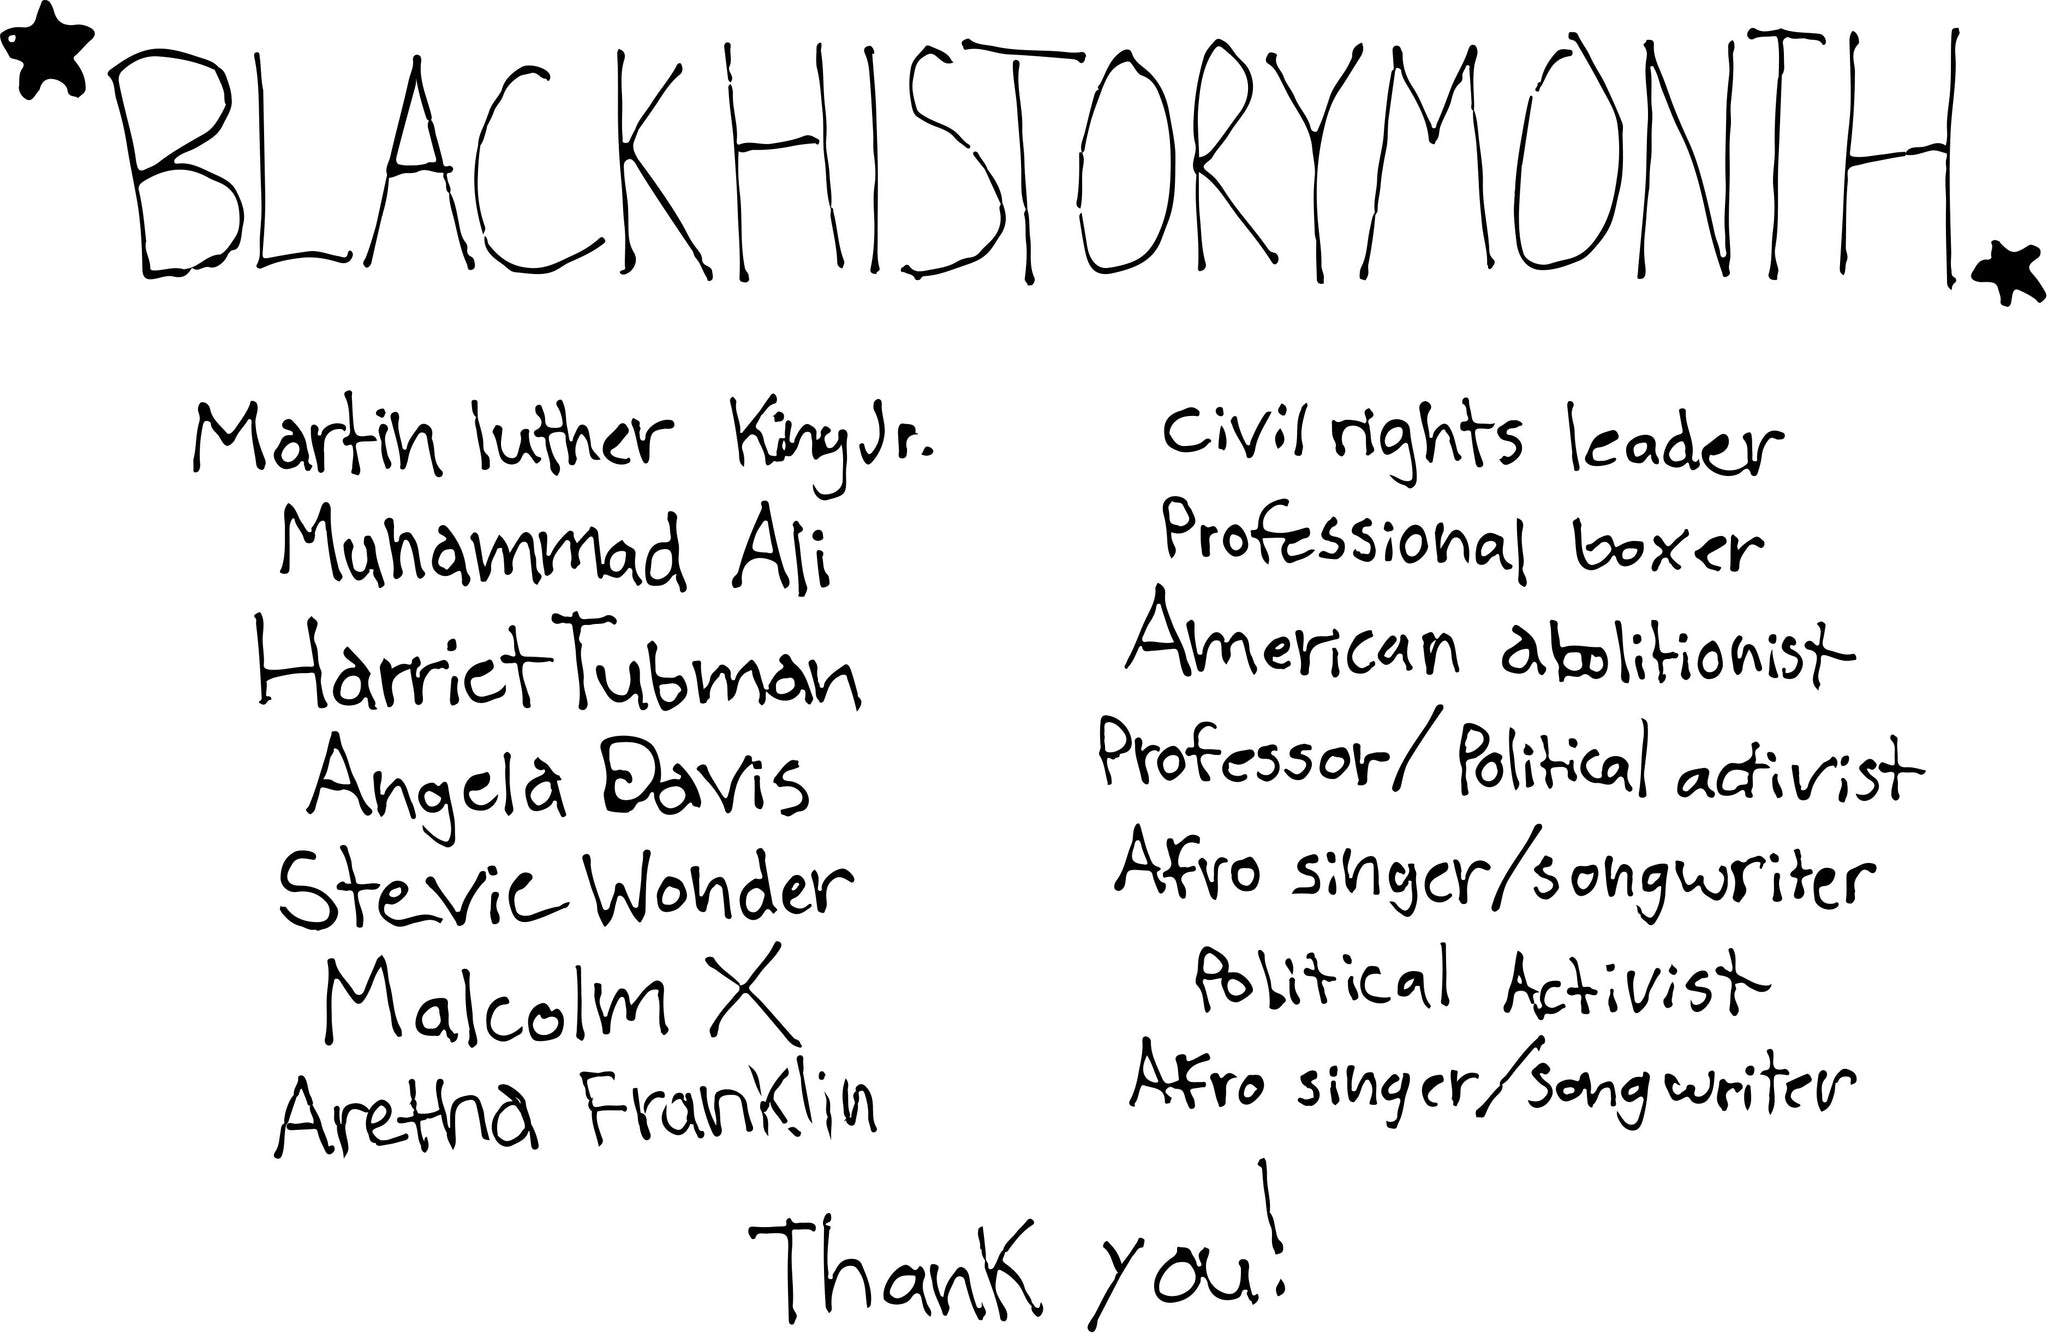 BLACKHISTORYMONTH
Martin luther King Jr. civil rights leader
Muhammad Ali Professional boxer
Harriet Tubman American abolitionist
Angela Davis Professor/Political activist
Stevie Wonder Afro singer/songwriter
Malcolm X Political Activist
Aretha Franklin Afro singer/songwriter
Thank you!